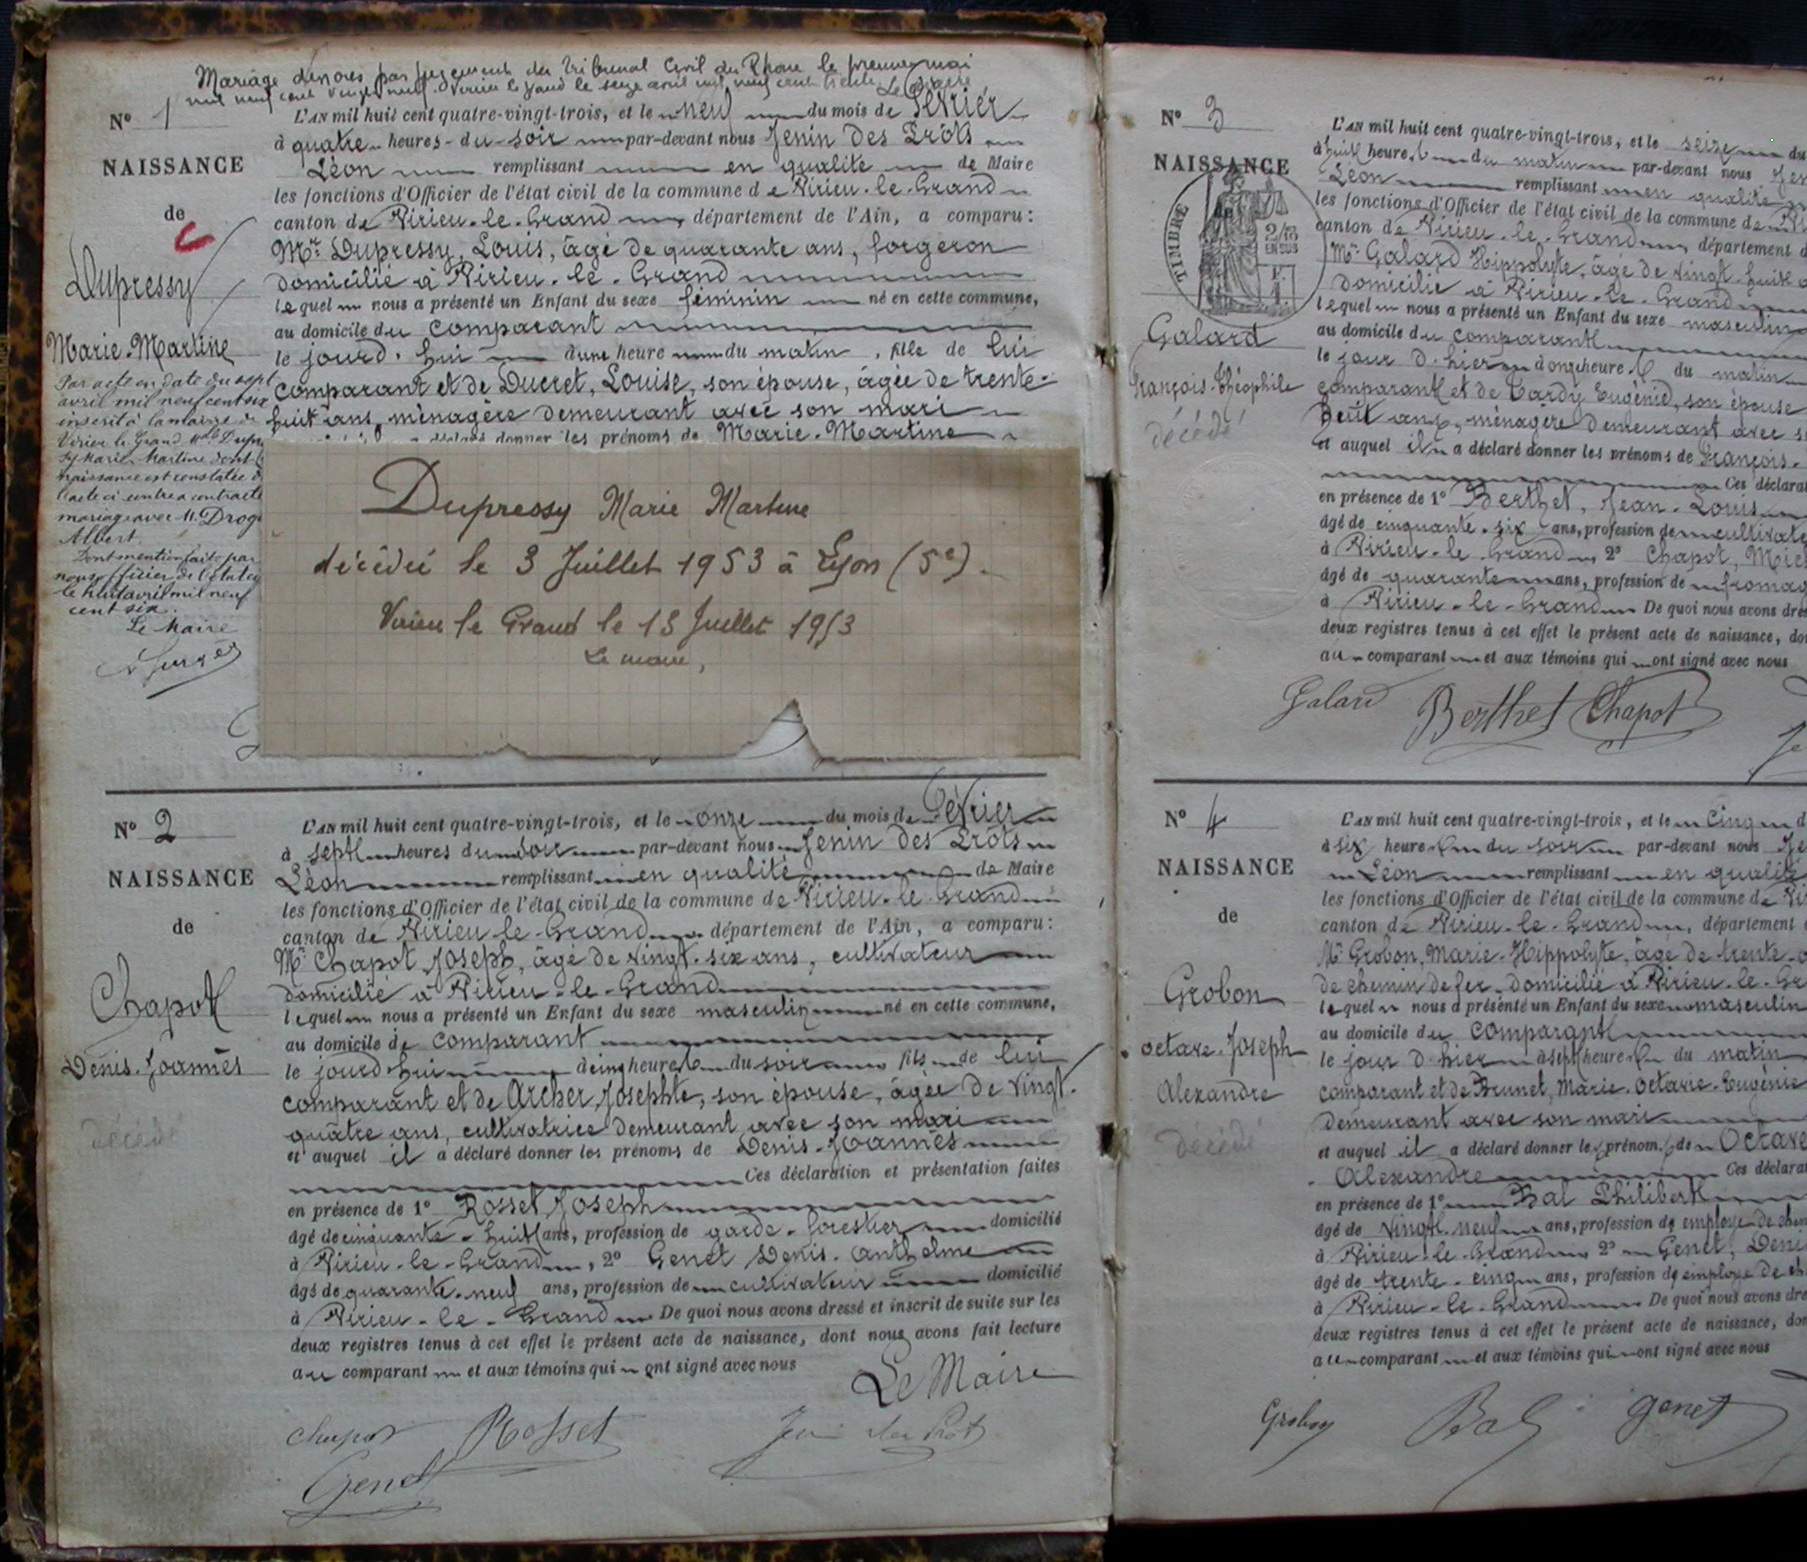 Mariage dissous par jugement du Tribunal Civil du Rhône le premier mai
mil neuf cent vingt neuf. Virieu le Grand le seize avril mil neuf cent trente Le Maire
N° 1
NAISSANCE
de
Dupressy
Marie-Martine
Par acte en date du sept
avril mil neuf cent six
inscrit à la mairie de
Virieu le Grand Mlle Dupres
sy Marie Martine dont la
naissance est constatée
l'acte ci contre a contracté
mariage avec M. Drog
Albert.
Dont mention faite par
nous officier de l'état
le huit avril mil neuf
cent six.
Le Maire
L'AN mil huit cent quatre-vingt-trois, et le neuf du mois de Février
à quatre heures du soir par-devant nous Jenin des Prôts
Léon remplissant en qualité de Maire
les fonctions d'Officier de l'état civil de la commune de Virieu-le-Grand
canton de Virieu-le-Grand département de l'Ain, a comparu:
Mr Dupressy, Louis, âgé de quarante ans, forgeron
domicilié à Virieu-le-Grand
lequel nous a présenté un Enfant du sexe féminin né en cette commune,
au domicile du comparant
le jourd'hui à une heure du matin, fille de lui
comparant et de Ducret, Louise, son épouse, âgée de trente-
huit ans, ménagère demeurant avec son mari
a déclaré donner les prénoms de Marie-Martine
Dupressy Marie Martine
décédée le 3 Juillet 1953 à Lyon (5e).
Virieu le Grand le 15 Juillet 1953
Le maire,
N° 2
NAISSANCE
de
Chapot
Denis-Joannès
décédé
L'AN mil huit cent quatre-vingt-trois, et le onze du mois de Février
à sept heures du soir par-devant nous Jenin des Prôts
Léon remplissant en qualité de Maire
les fonctions d'Officier de l'état civil de la commune de Virieu-le-Grand
canton de Virieu-le-Grand département de l'Ain, a comparu:
Mr Chapot Joseph, âgé de vingt-six ans, cultivateur
domicilié à Virieu-le-Grand
lequel nous a présenté un Enfant du sexe masculin né en cette commune,
au domicile de comparant
le jourd'hui à cinq heures du soir fils de lui
comparant et de Archer, Josephte, son épouse, âgée de vingt-
quatre ans, cultivatrice demeurant avec son mari
et auquel il a déclaré donner les prénoms de Denis-Joannès
Ces déclaration et présentation faites
en présence de 1° Rosset, Joseph
âgé de cinquante-huit ans, profession de garde-forestier domicilié
à Virieu-le-Grand, 2° Genet Denis-Anthelme
âgé de quarante-neuf ans, profession de cultivateur domicilié
à Virieu-le-Grand De quoi nous avons dressé et inscrit de suite sur les
deux registres tenus à cet effet le présent acte de naissance, dont nous avons fait lecture
au comparant et aux témoins qui ont signé avec nous
Le Maire
Chapot Rosset Jenin des Prôts
Genet
N° 3
NAISSANCE
TIMBRE
2/10
EN SUS
Galard
François-Théophile
décédé
L'AN mil huit cent quatre-vingt-trois, et le seize du
à huit heures du matin par-devant nous Jen
Léon remplissant en qualité
les fonctions d'Officier de l'état civil de la commune de Vi
canton de Virieu-le-Grand département d
Mr Galard Hippolyte, âgé de vingt-huit
domicilié à Virieu-le-Grand
lequel nous a présenté un Enfant du sexe masculin
au domicile du comparant
le jour d'hier à onze heures du matin
comparant et de Tardy Eugénie, son épouse
ans, ménagère demeurant avec s
et auquel il a déclaré donner les prénoms de François-
Ces déclarat
en présence de 1° Berthet, Jean-Louis
âgé de cinquante-six ans, profession de cultivate
à Virieu-le-Grand 2° Chapot, Mic
âgé de quarante ans, profession de fromag
à Virieu-le-Grand De quoi nous avons dres
deux registres tenus à cet effet le présent acte de naissance, do
au comparant et aux témoins qui ont signé avec nous
Galard Berthet Chapot
N° 4
NAISSANCE
de
Grobon
Octave-Joseph
Alexandre
décédé
L'AN mil huit cent quatre-vingt-trois, et le cinq d
à six heures du soir par-devant nous Je
Léon remplissant en qualité
les fonctions d'Officier de l'état civil de la commune de Vi
canton de Virieu-le-Grand, département
Mr Grobon, Marie-Hippolyte, âgé de trente-
de chemin de fer, domicilié à Virieu-le-Gr
lequel nous a présenté un Enfant du sexe masculin
au domicile du comparant
le jour d'hier à sept heures du matin
comparant et de Brunet, Marie-Octavie-Eugénie
demeurant avec son mari
et auquel il a déclaré donner les prénoms de Octave
Alexandre Ces déclarat
en présence de 1° Bal Philibert
âgé de vingt-neuf ans, profession de employé de chem
à Virieu-le-Grand 2° Genet, Deni
âgé de trente-cinq ans, profession de employé de ch
à Virieu-le-Grand De quoi nous avons dre
deux registres tenus à cet effet le présent acte de naissance, don
au comparant et aux témoins qui ont signé avec nous
Grobon Bal Genet